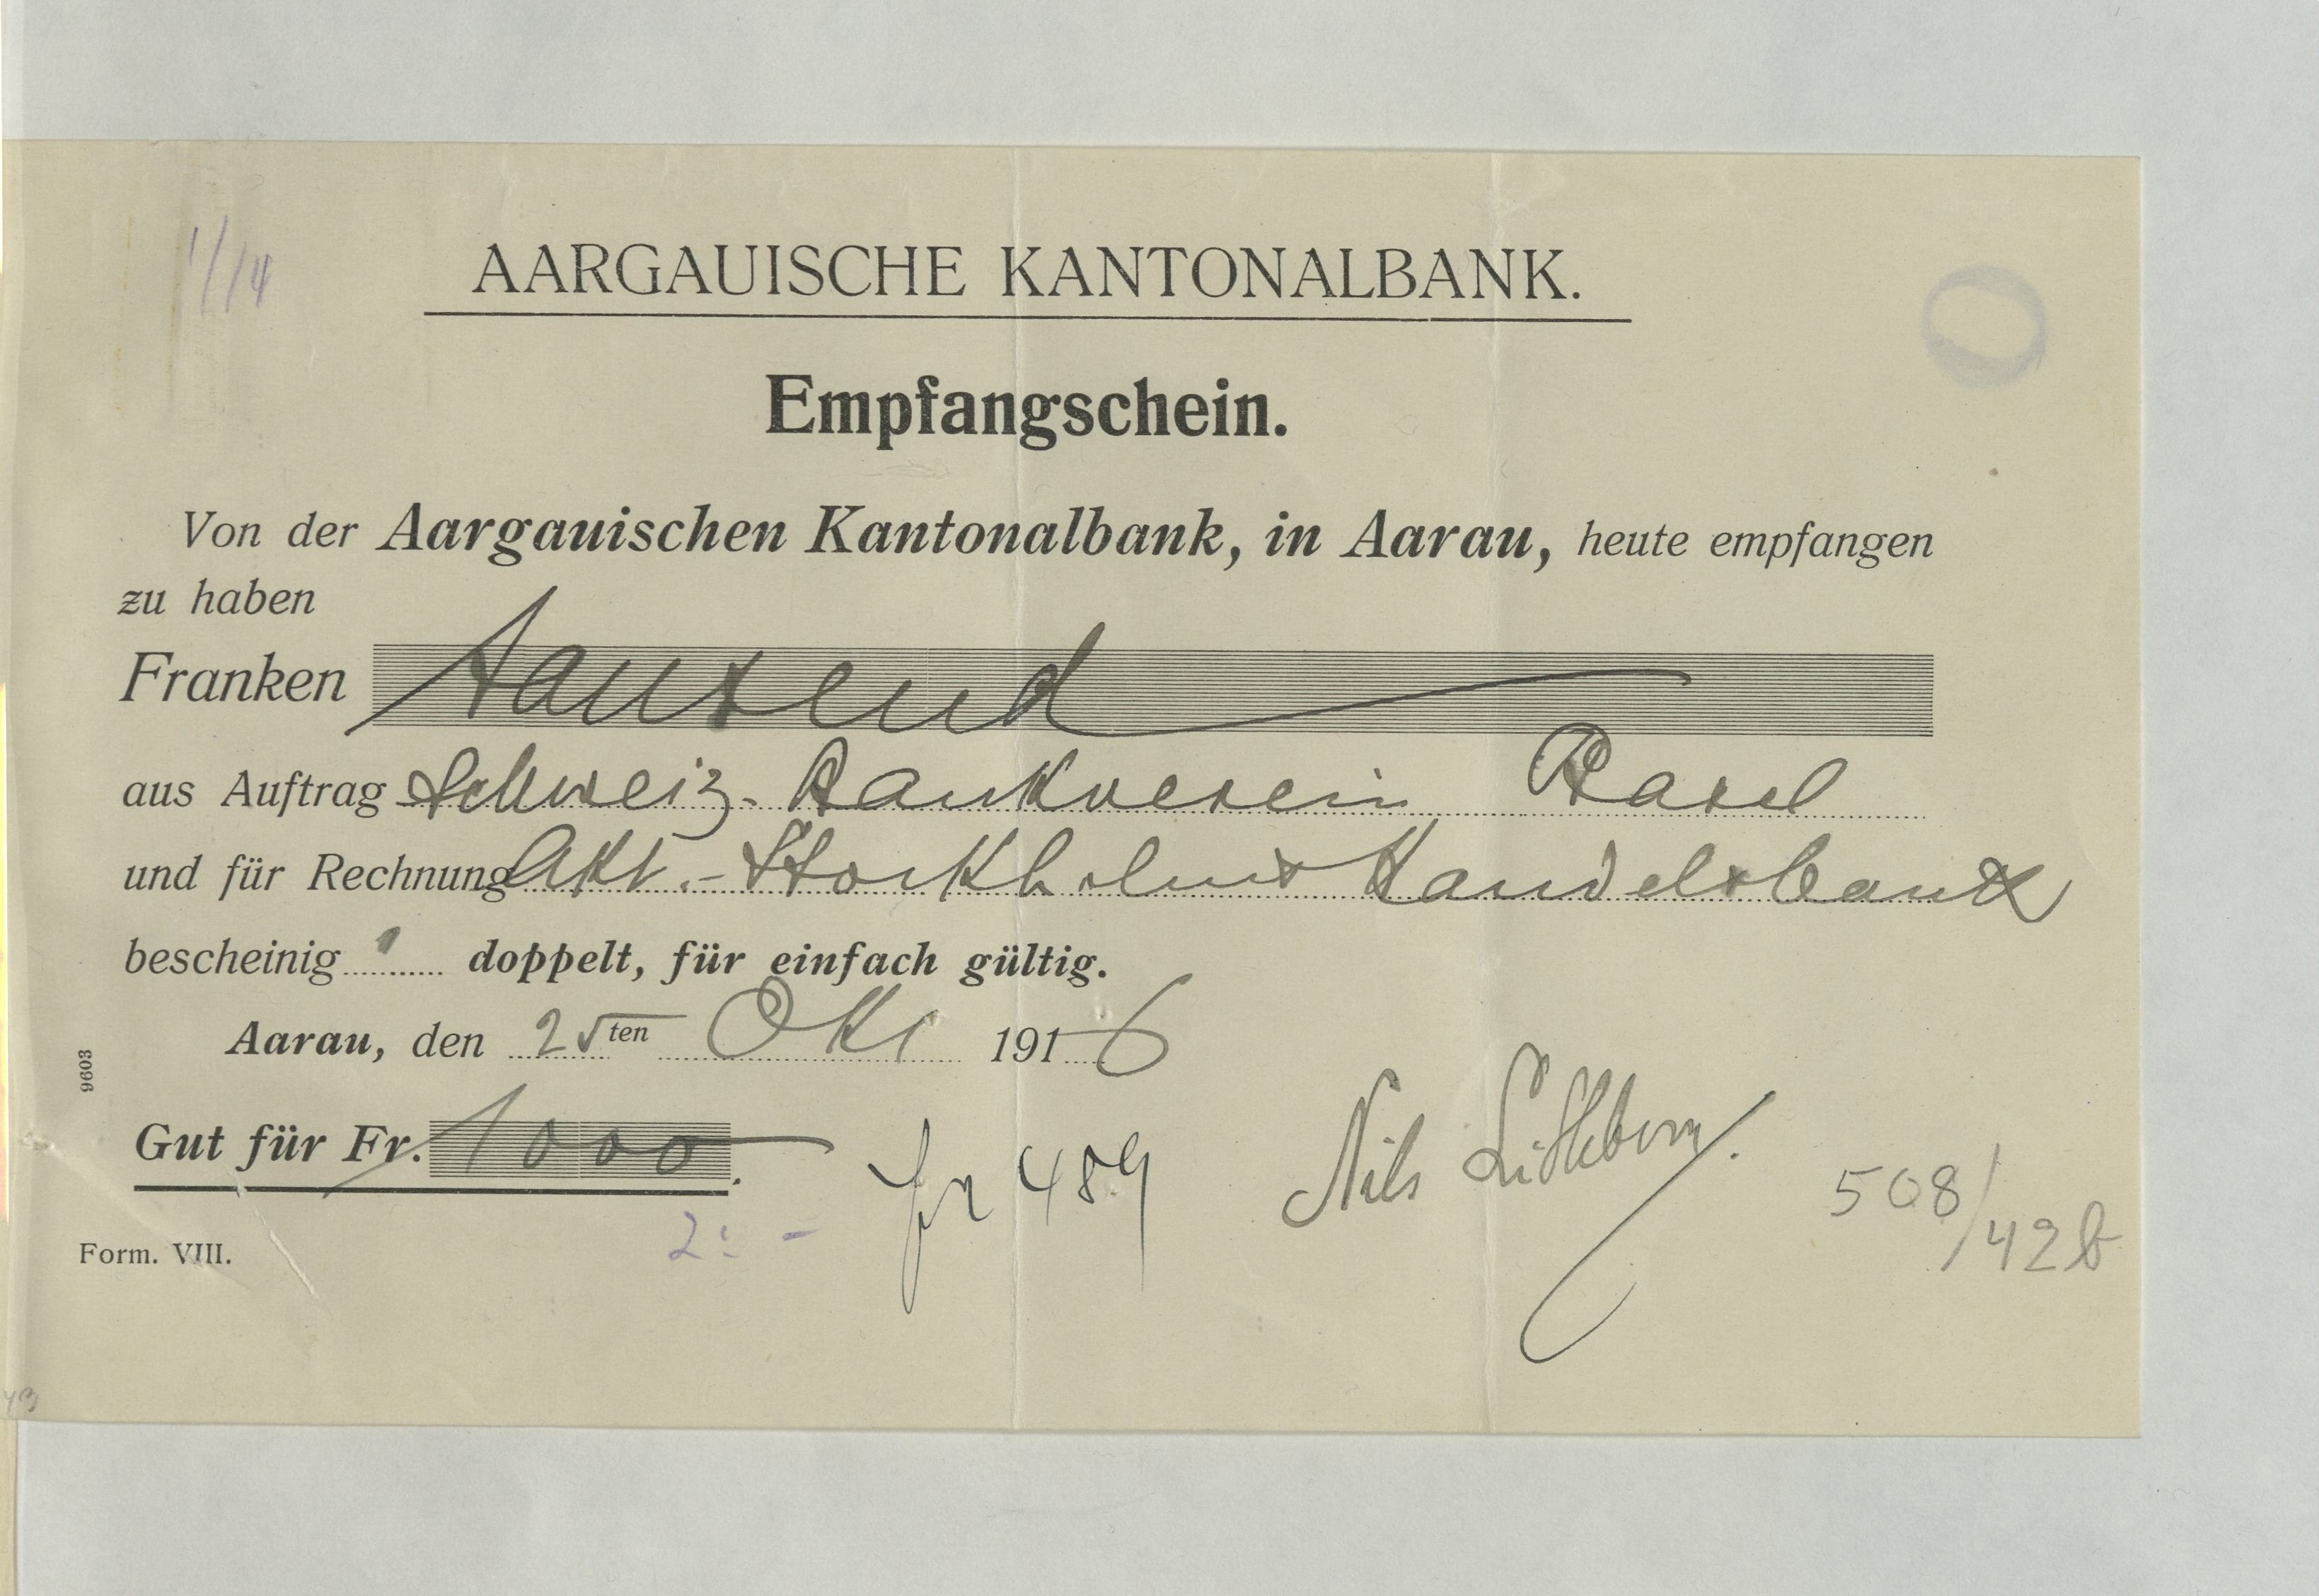 1/14
AARGAUISCHE KANTONALBANK.
Empfangschein.
Von der Aargauischen Kantonalbank, in Aarau, heute empfangen
zu haben
Franken tausend
aus Auftrag Schweiz. Bankverein Basel
und für Rechnung Akt.-Stockholms Handelsbank
bescheinig doppelt, für einfach gültig.
Aarau, den 25ten Okt 1916
9603
Gut für Fr. 1000.
2: - fr 489 Nils 508/42b
Form. VIII.